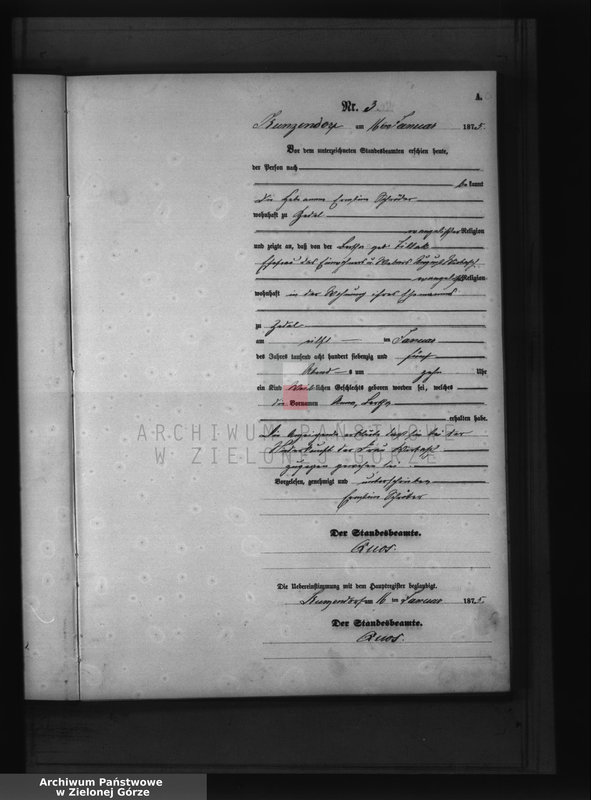 A.
Nr. 3
Kunzendorf am 16ten Januar 1875.
Vor dem unterzeichneten Standesbeamten erschien heute,
der Person nach
bekannt
die Hebamme Ernstine Schröder
wohnhaft zu Zedel
evangelischer Religion
und zeigte an, daß von der Bertha geb.
Ehefrau des u. Webers August
evangelischer Religion
wohnhaft in der Wohnung ihres Ehemannes
zu Zedel
am elften im Januar
des Jahres tausend acht hundert siebenzig und fünf
Abends um zehn Uhr
ein Kind weiblichen Geschlechts geboren worden sei, welches
die Vornamen Anna, Bertha
erhalten habe.
Die Anzeigende erklärte daß sie bei der
Niederkunft der Frau
zugegen gewesen sei.
Vorgelesen, genehmigt und unterschrieben
Ernstine Schröder
Der Standesbeamte.
Quos.
Die Uebereinstimmung mit dem Hauptregister beglaubigt.
Kunzendorf am 16 ten Januar 1875.
Der Standesbeamte.
Quos.
ARCHIWUM PAŃSTWOWE
W ZIELONEJ GÓRZE
Archiwum Państwowe
w Zielonej Górze